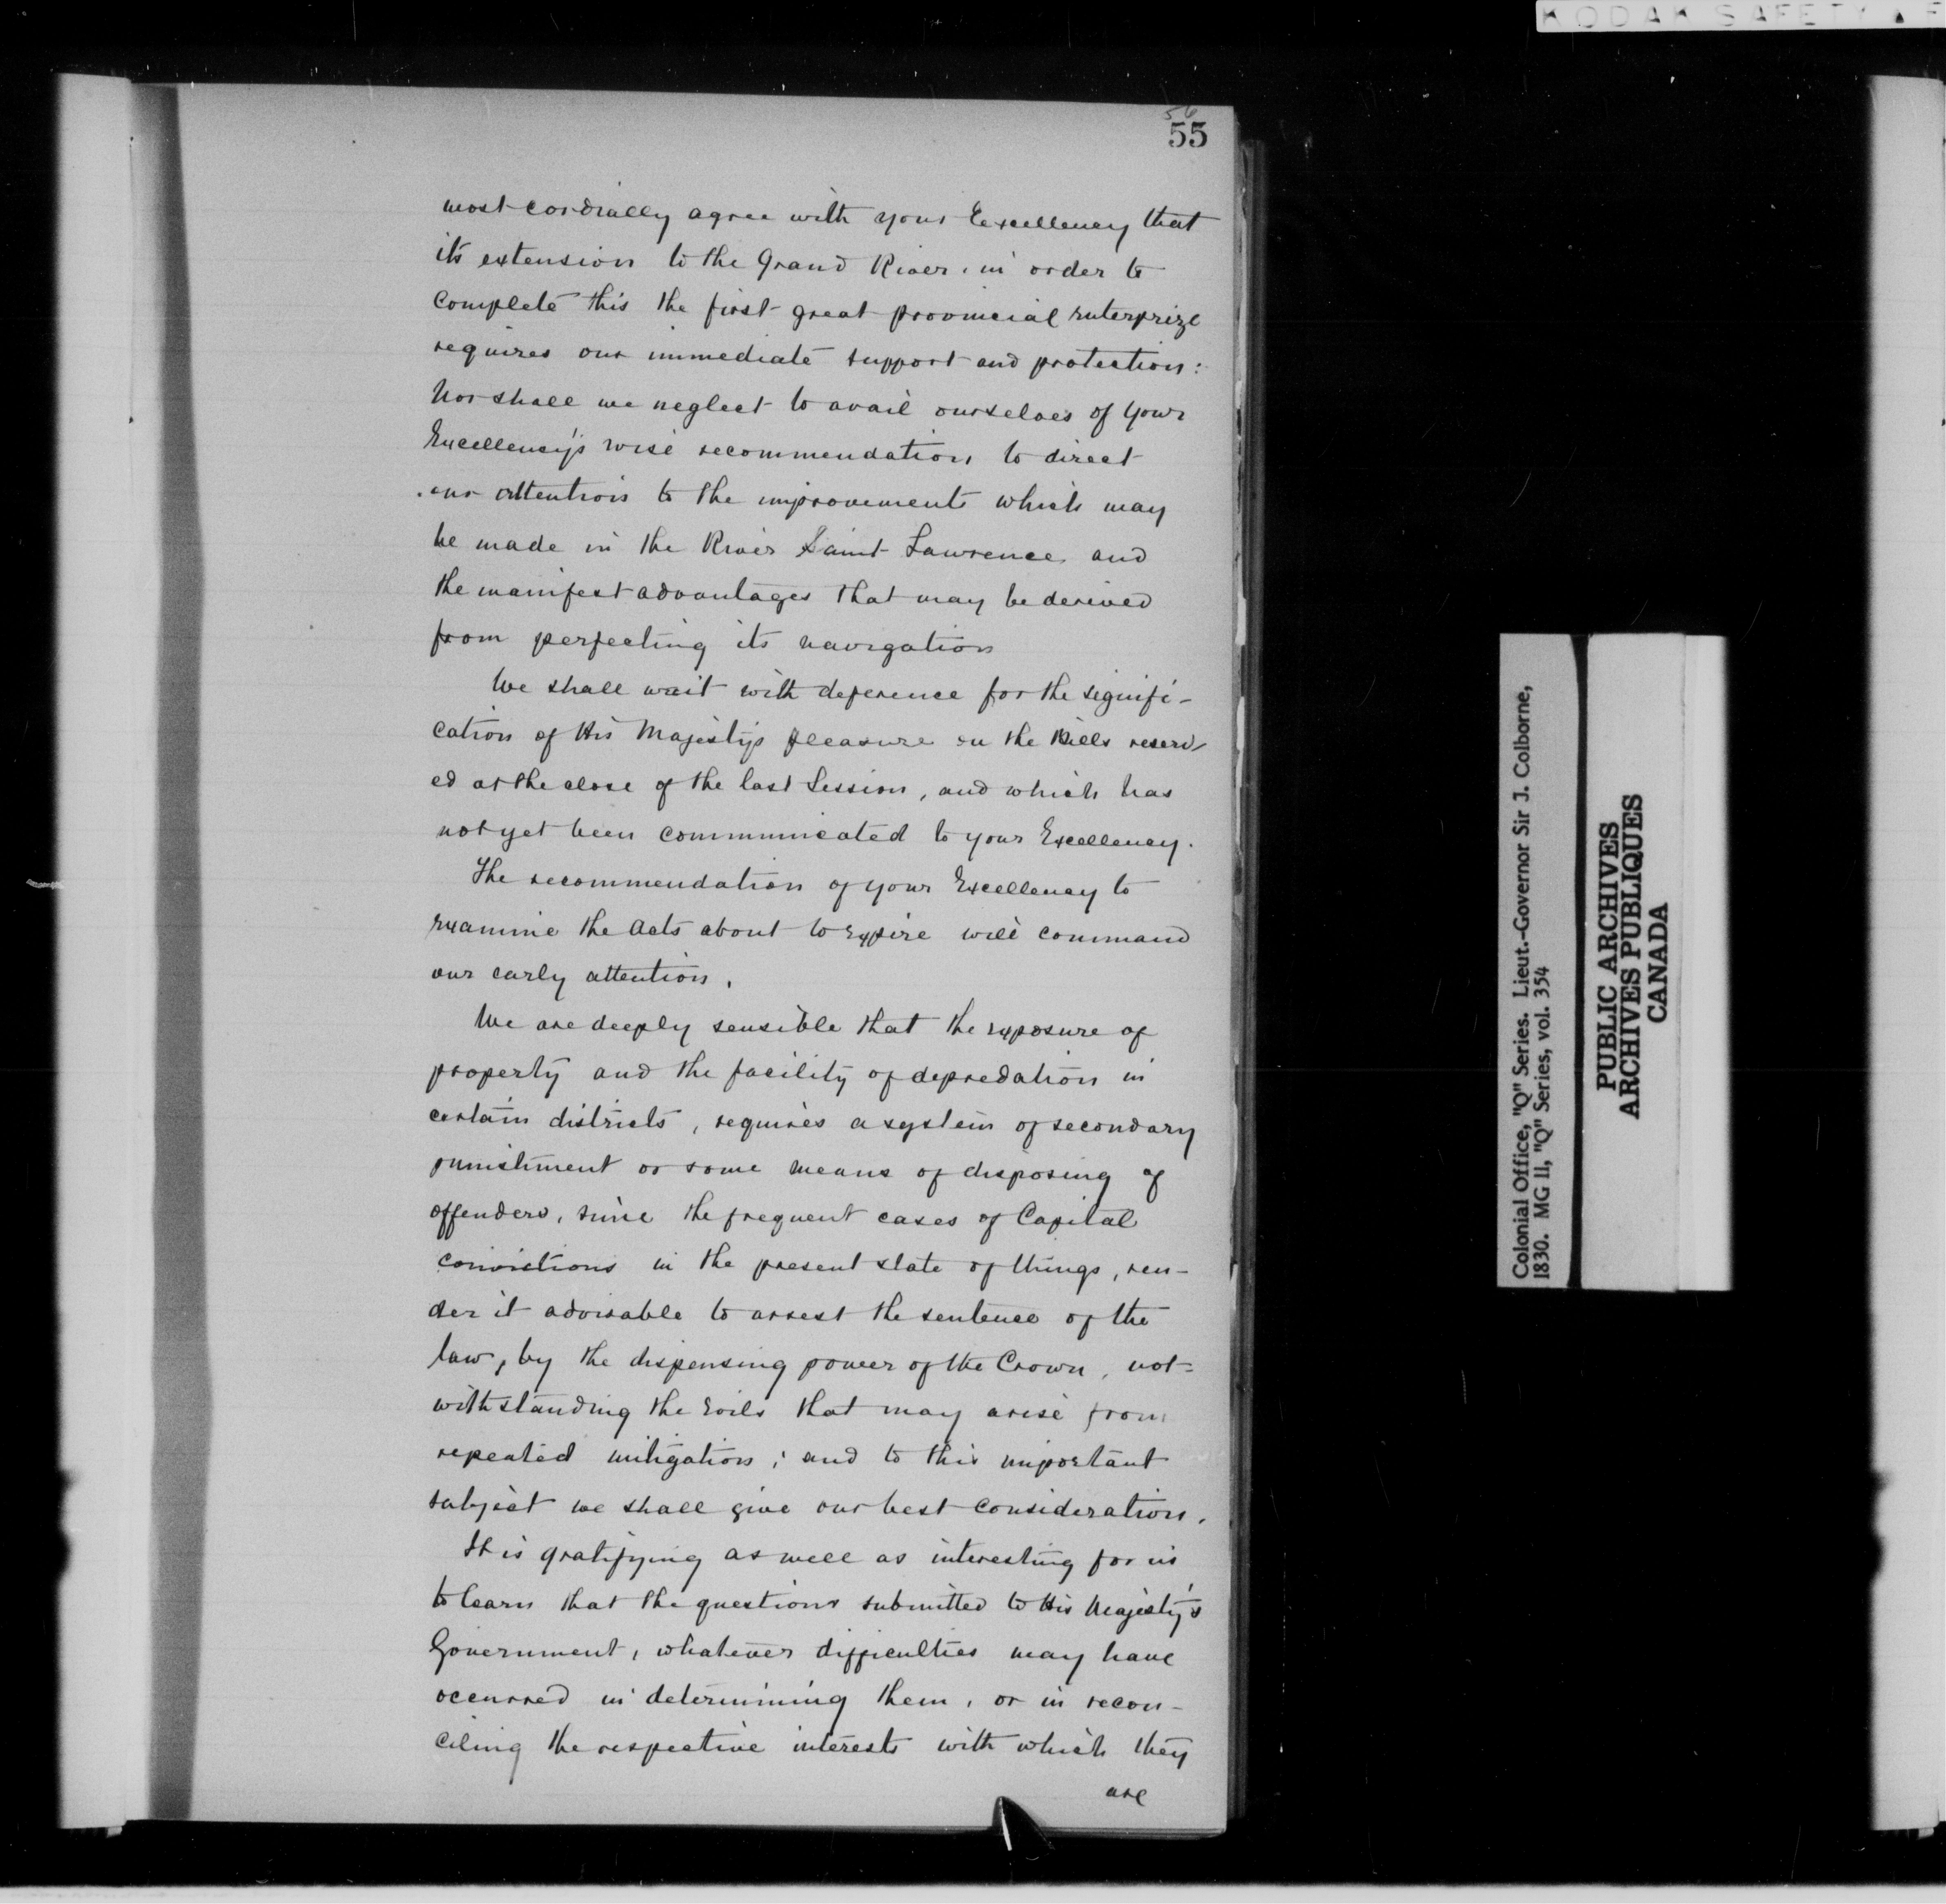 KODAK SAFETY ▲ F
56
55
most cordially agree with your Excellency that
its extension to the Grand River, in order to
complete this the first great provincial enterprize
requires our immediate support and protection:
Nor shall we neglect to avail ourselves of your
Excellency's wise recommendation to direct
our attention to the improvements which may
be made in the River Saint Lawrence and
the manifest advantages that may be derived
from perfecting its navigation
We shall wait with deference for the signifi-
cation of His Majesty's pleasure on the Bills reserv-
ed at the close of the last Session, and which has
not yet been communicated to your Excellency.
The recommendation of your Excellency to
examine the Acts about to expire will command
our early attention.
We are deeply sensible that the exposure of
property and the facility of depredation in
certain districts, requires a system of secondary
punishment or some means of disposing of
offenders, since the frequent cases of Capital
convictions in the present state of things, ren-
der it advisable to arrest the sentence of the
law, by the dispensing power of the Crown, not=
withstanding the evils that may arise from
repeated mitigation; and to this important
subject we shall give our best consideration.
It is gratifying as well as interesting for us
to learn that the questions submitted to His Majesty's
Government, whatever difficulties may have
occurred in determining them, or in recon-
ciling the respective interests with which they
are
Colonial Office, "Q" Series. Lieut.-Governor Sir J. Colborne,
1830. MG 11, "Q" Series, vol. 354
PUBLIC ARCHIVES
ARCHIVES PUBLIQUES
CANADA